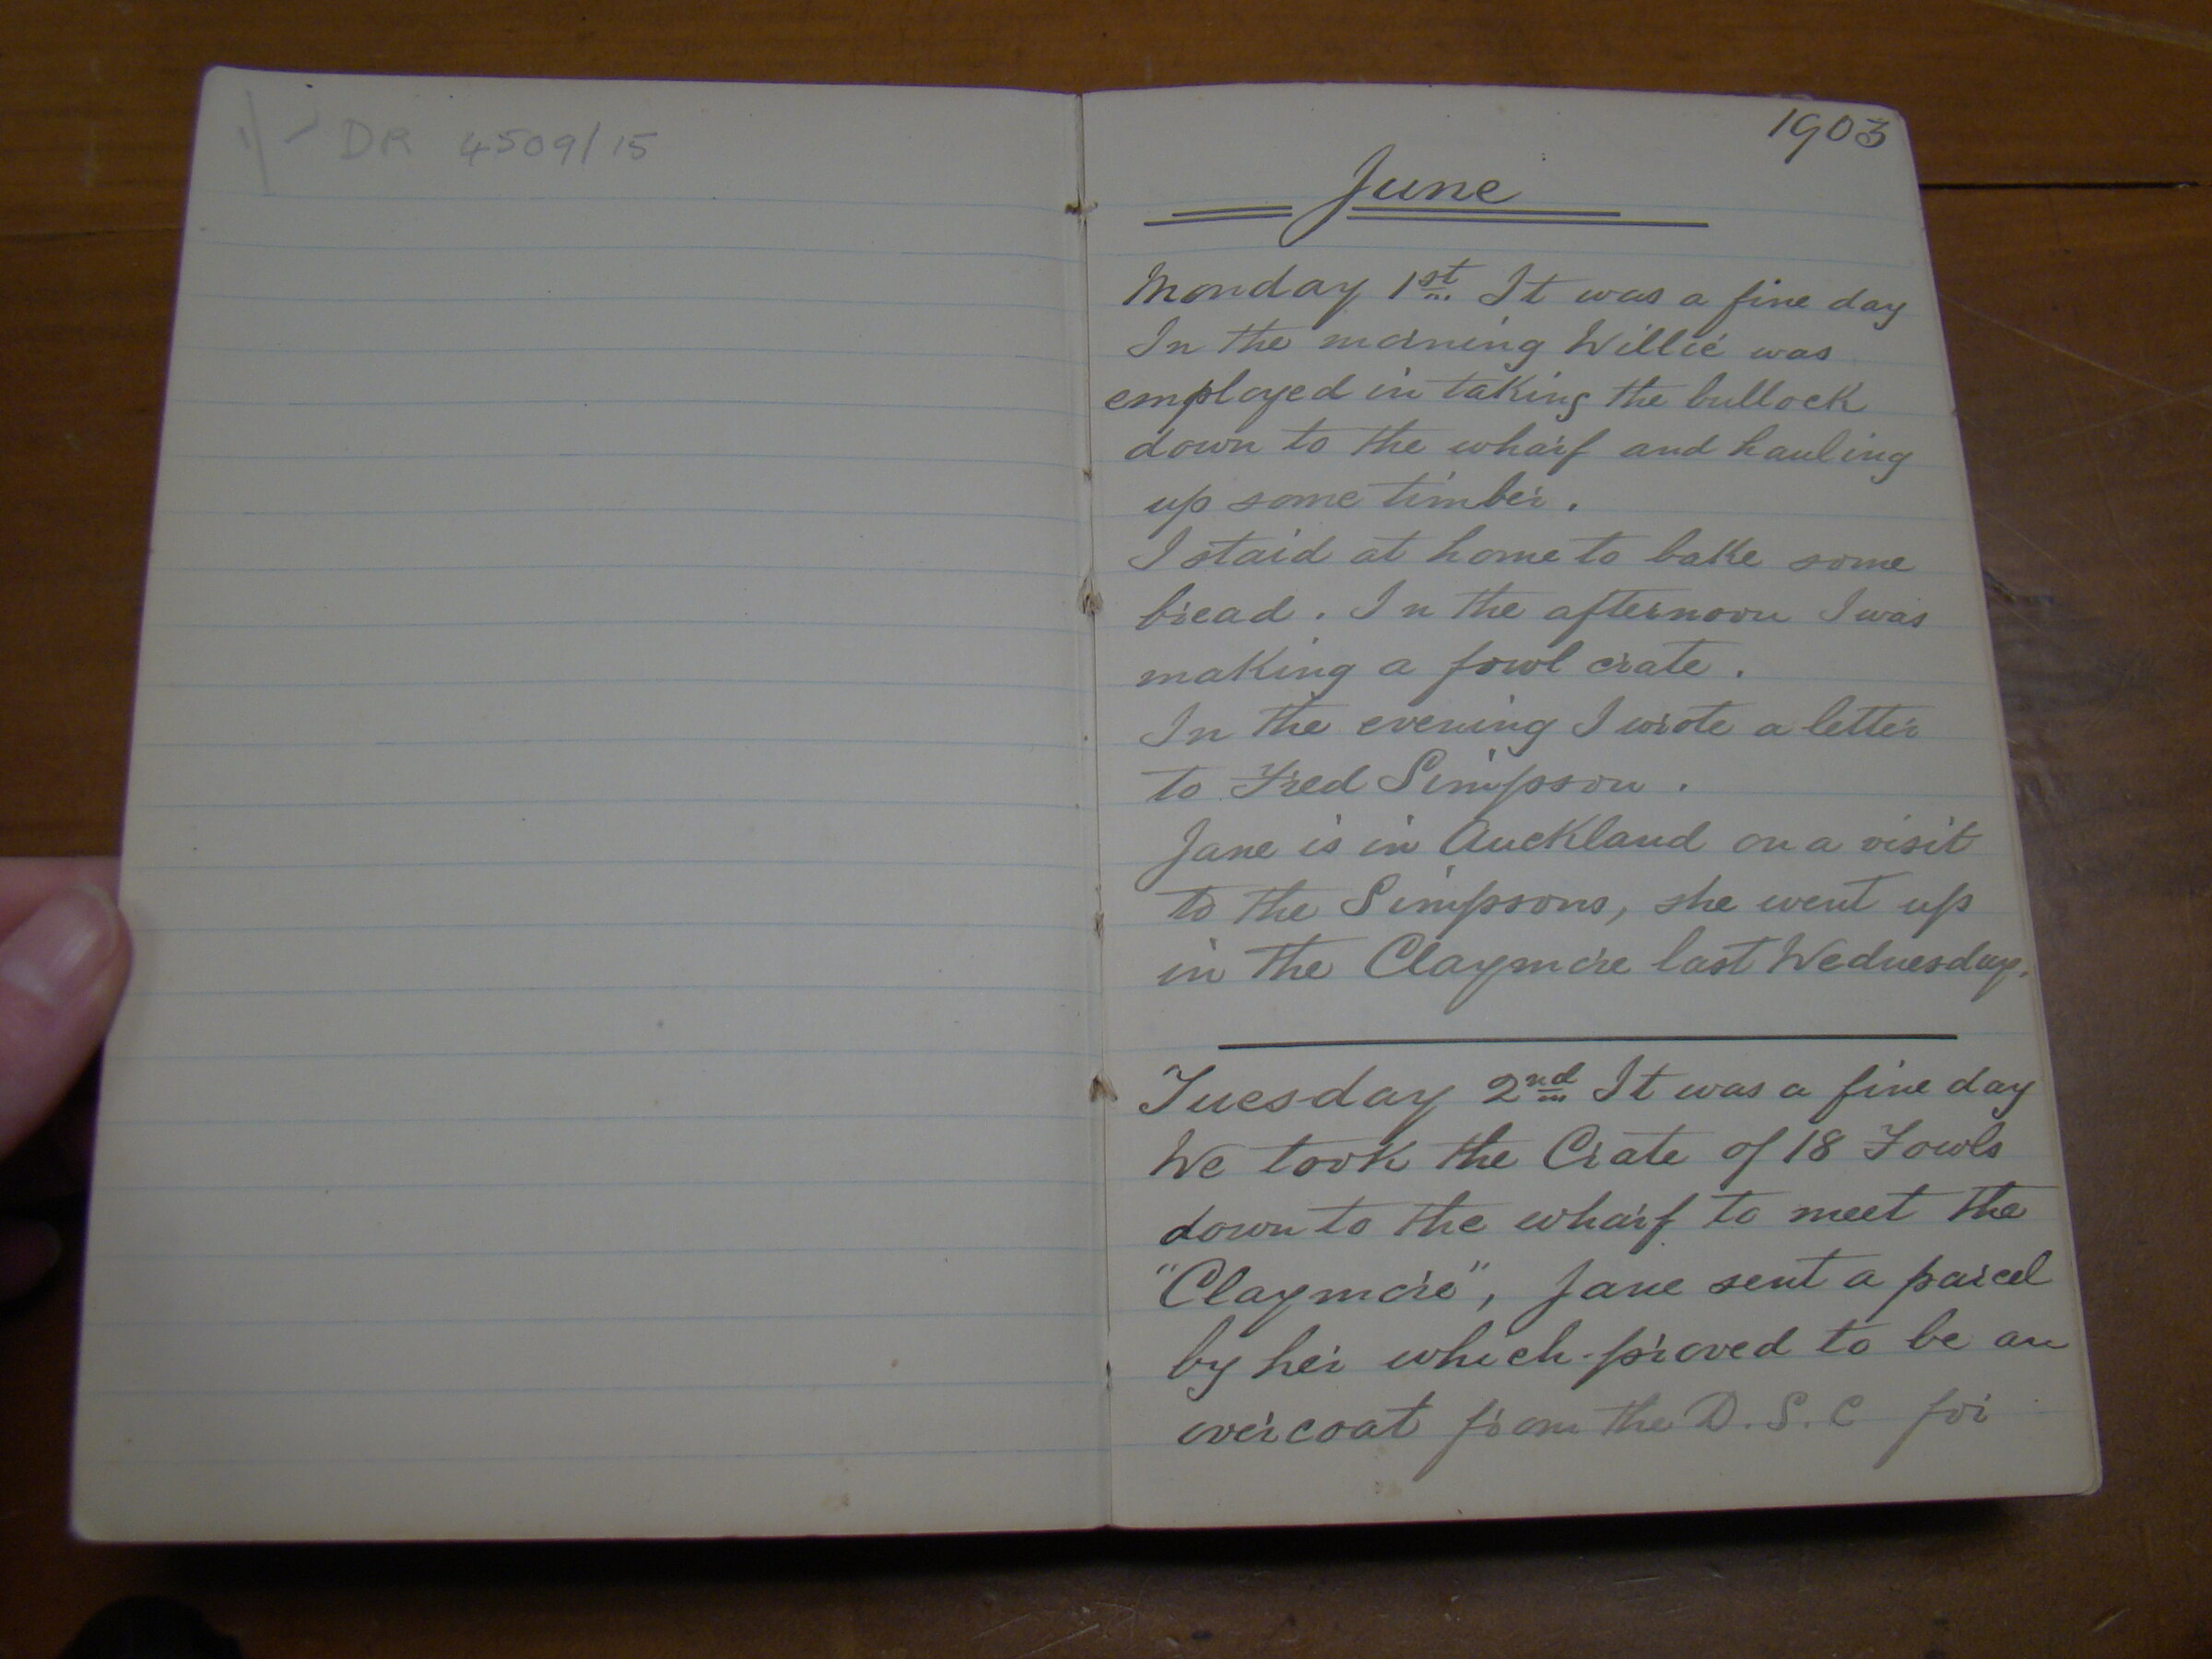 DR 4509/15
1903
June
Monday 1st It was a fine day
In the morning Willie was
employed in taking the bullock
down to the wharf and hauling
up some timber.
I staid at home to bake some
bread. In the afternoon I was
making a fowl crate.
In the evening I wrote a letter
to Fred Simpson.
Jane is in Auckland on a visit
to the Simpsons, she went up
in the Claymore last Wednesday.
Tuesday 2nd It was a fine day
We took the Crate of 18 Fowls
down to the wharf to meet the
"Claymore", Jane sent a parcel
by her which proved to be an
overcoat from the D.S.C for